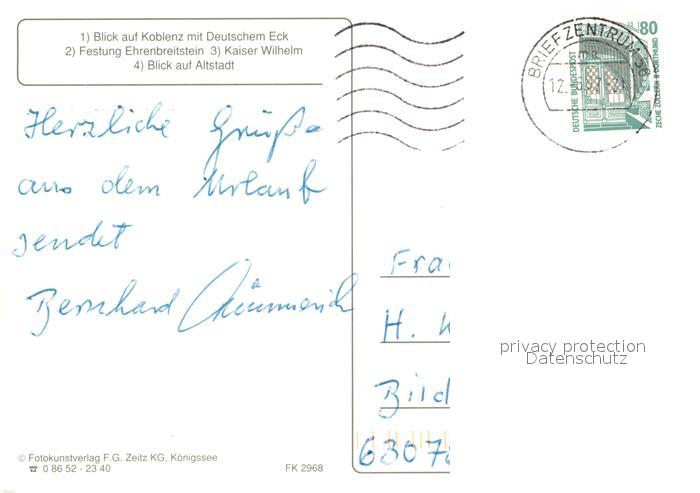 1) Blick auf Koblenz mit Deutschem Eck
2) Festung Ehrenbreitstein 3) Kaiser Wilhelm
4) Blick auf Altstadt
BRIEFZENTRUM 56
12.
80
DEUTSCHE BUNDESPOST
ZECHE ZOLLERN II DORTMUND
Herzliche Grüße
aus dem Urlaub
sendet
Bernhard
Fra
H.
Bild
6307
privacy protection
Datenschutz
© Fotokunstverlag F.G. Zeitz KG, Königssee
☎ 0 86 52 - 23 40
FK 2968